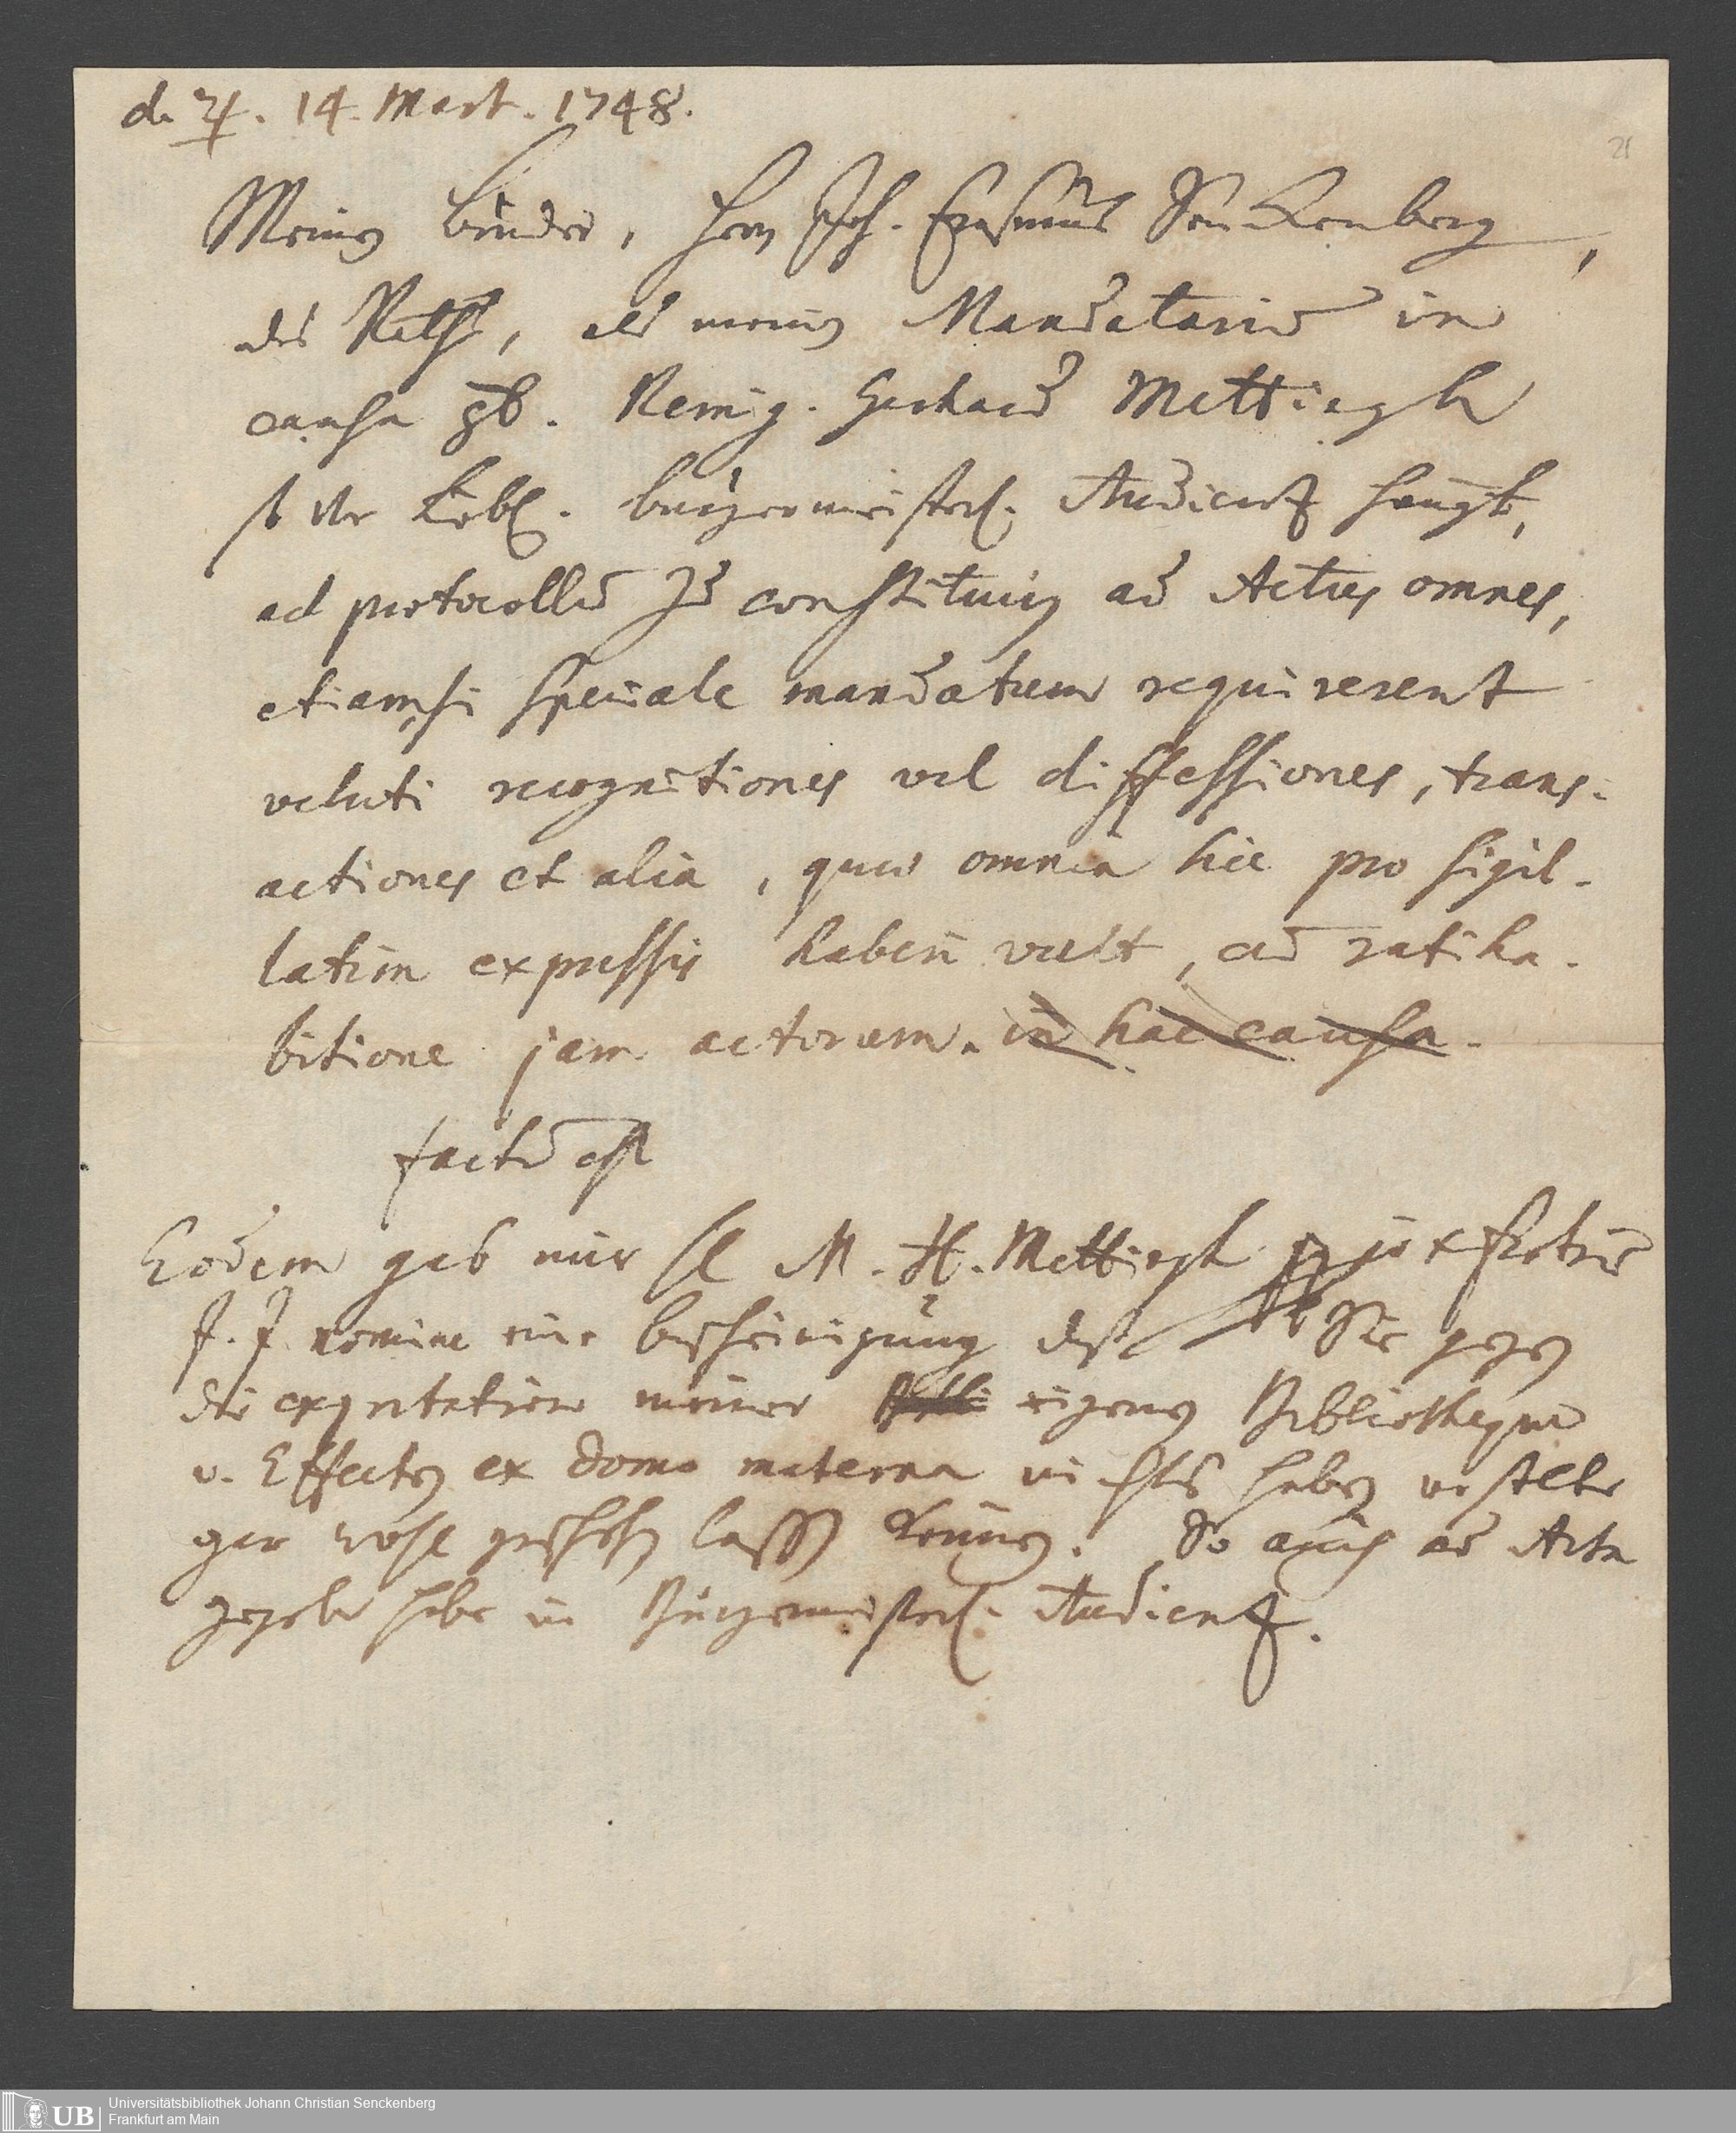 d. ♃. 14. Mart. 1748.
21
Meinen bruder, Herrn Joh. Erasmus Senckenberg,
des Raths, als meinen Mandatariū in
causa Remig. Gerhard Mettingh
Löbl. burgermeisterl. Audientz
ad protocollū zu constituiren ad Actus omnes,
etiamsi speciale mandatum requirerent
veluti recognitiones vel diffessiones, trans-
actiones et alia, quae omnia hic pro sigil-
latim expressis haberi vult, cū ratiha-
bitione jam actorum. in hac causa.
factū est
Eodem gab mir M. H. Mettingh
nomine eine bescheinigung daß Sie gegen
die exportation meiner eigenen Bibliotheque
u. Effecten ex domo materna nichts haben
gar wohl geschehen lassen können. So auch ad Acta
gegeben habe in Burgermeisterl. Audientz.
Universitätsbibliothek Johann Christian Senckenberg
Frankfurt am Main
UB